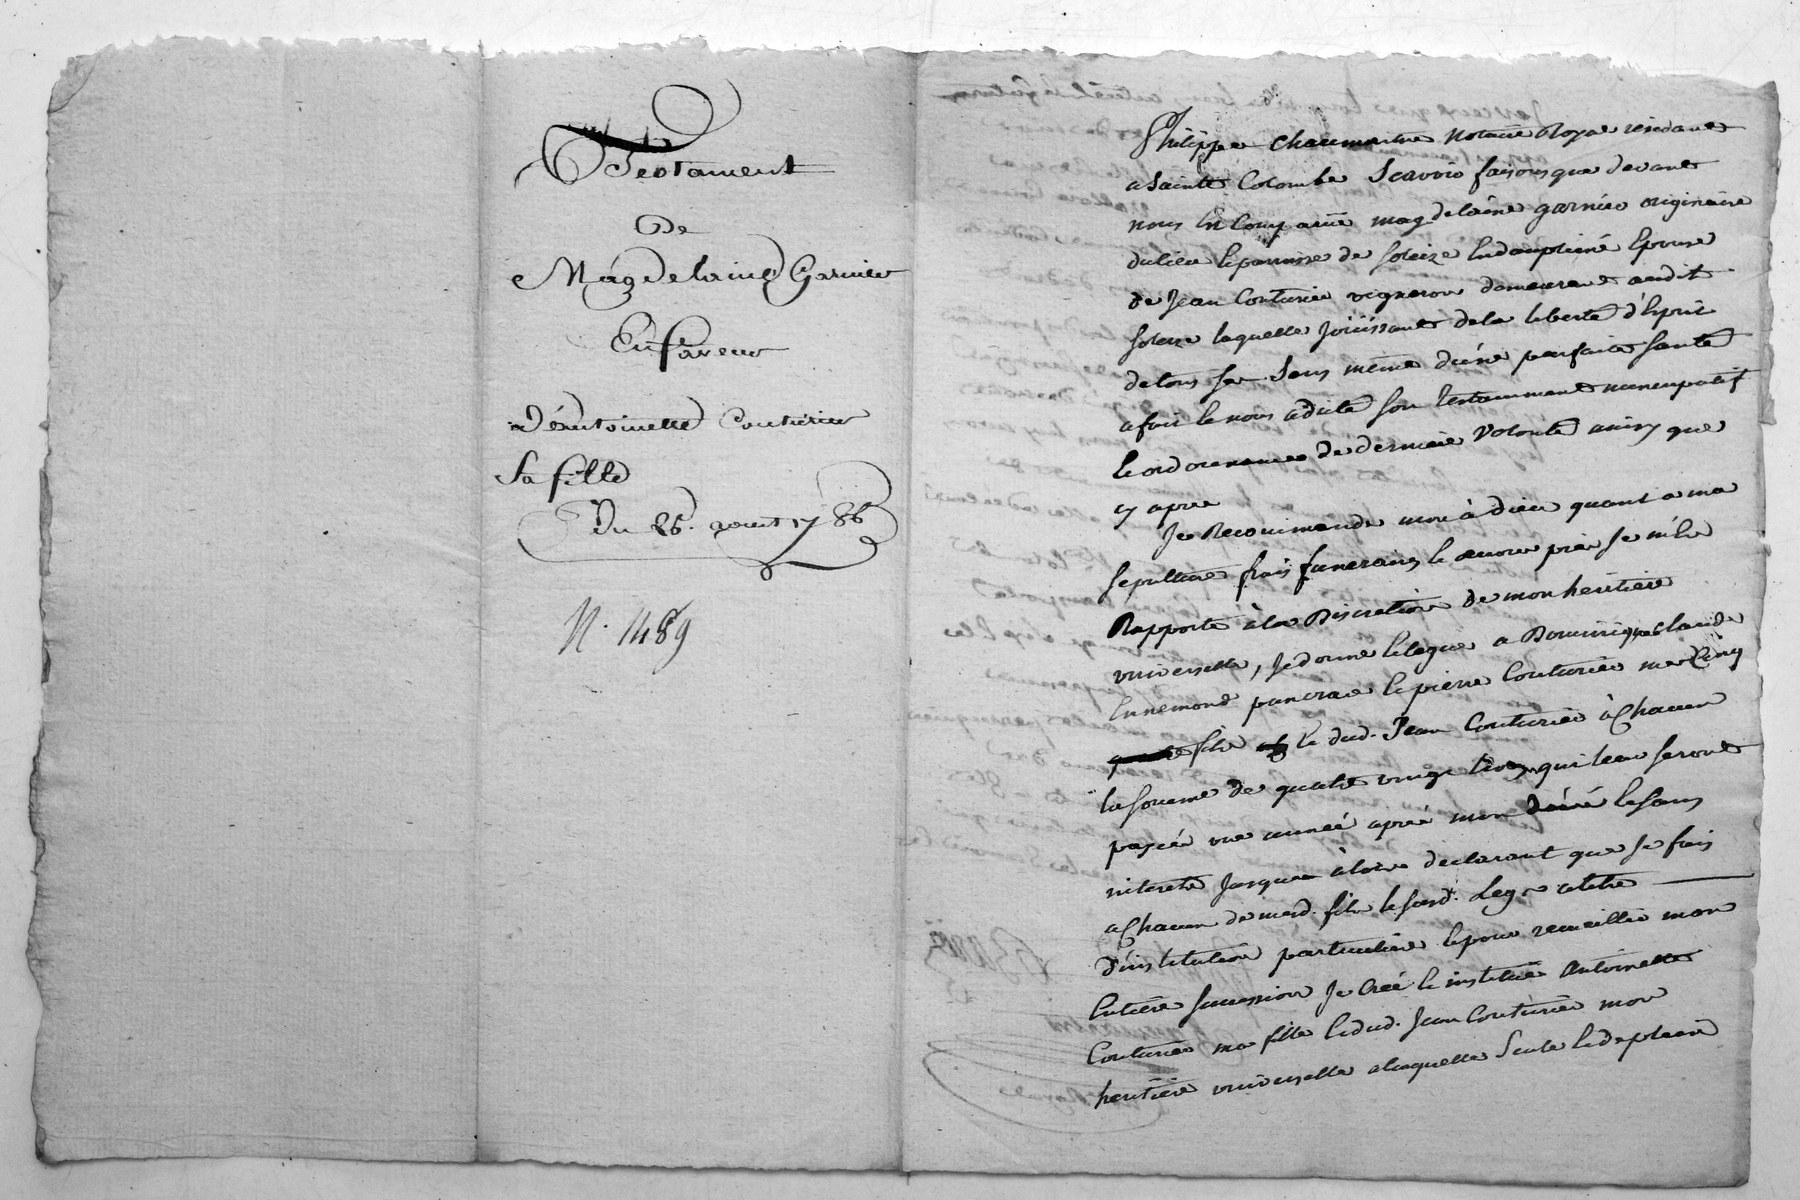 Testament
De
Magdelaine Garnier
En faveur
D'éantoinette Couturier
Sa fille
Du 25. aoust 1786
N. 1489
Philippe Chaumartin Notaire Royal residant
a Sainte Colombe Scavoir faisons que devant
nous Est Comparüe magdelaine garnier originaire
du lieu Et parroisse de soleize En dauphiné Epouse
de Jean Couturier vigneron demeurant audit
soleize laquelle Joüissant de la liberté d'Esprit
de tous ses Sens même d'une parfaite santé
a fait Et nous a dicté son testamment nuncupatif
Et ordonnance de derniere volonté ainsy que
cy apres
Je Recommande mon à dieu quant a ma
sepulture frais funeraires Et œuvres pies je m'En
Rapporte à la Discretion de mon heritiere
universelle, Je donne Et legue a Dominique Claude
Ennemond pancrace Et pierre Couturier mes Cinq
fils Et dud. Jean Couturier à Chacun
la somme de quatre vingt livres qui leur seront
payées une année après mon décés Et sans
interets Jusques àlors declarant que je fais
a Chacun de mesd. fils le susd. Legs a titre
d'institution particuliere Et pour recueillir mon
Entiere succession Je Créé Et instituë Antoinette
Couturier ma fille Et dud. Jean Couturier mon
heritiere universelle a laquelle Seule Et de plein